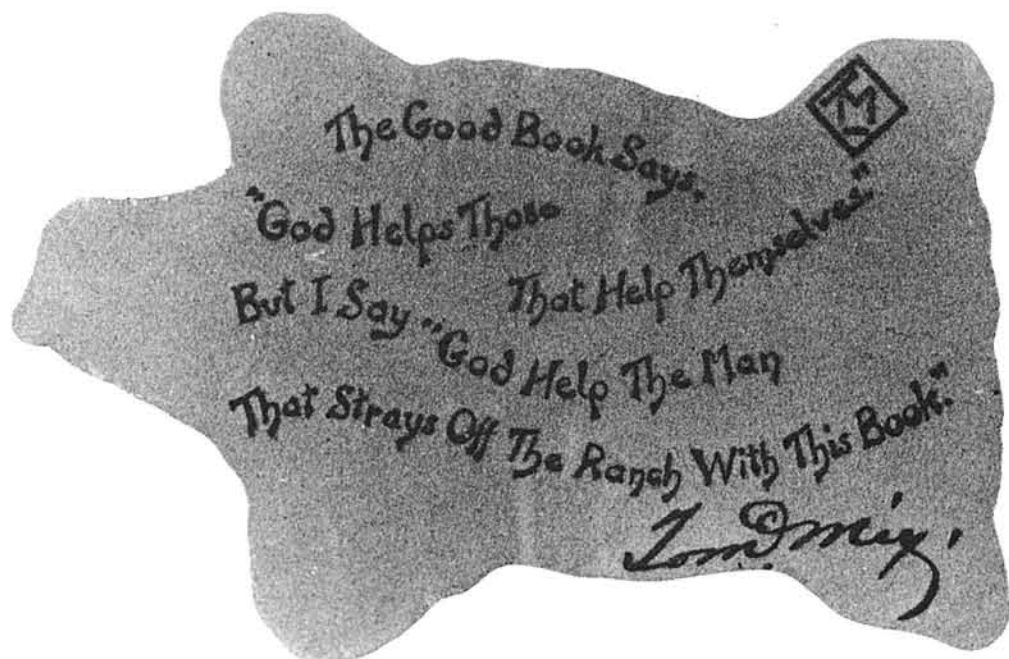 The Good Book Says.
"God Helps Those
That Help Themselves."
But I Say "God Help The Man
That Strays Off The Ranch With This Book."
Tom Mix.
TM